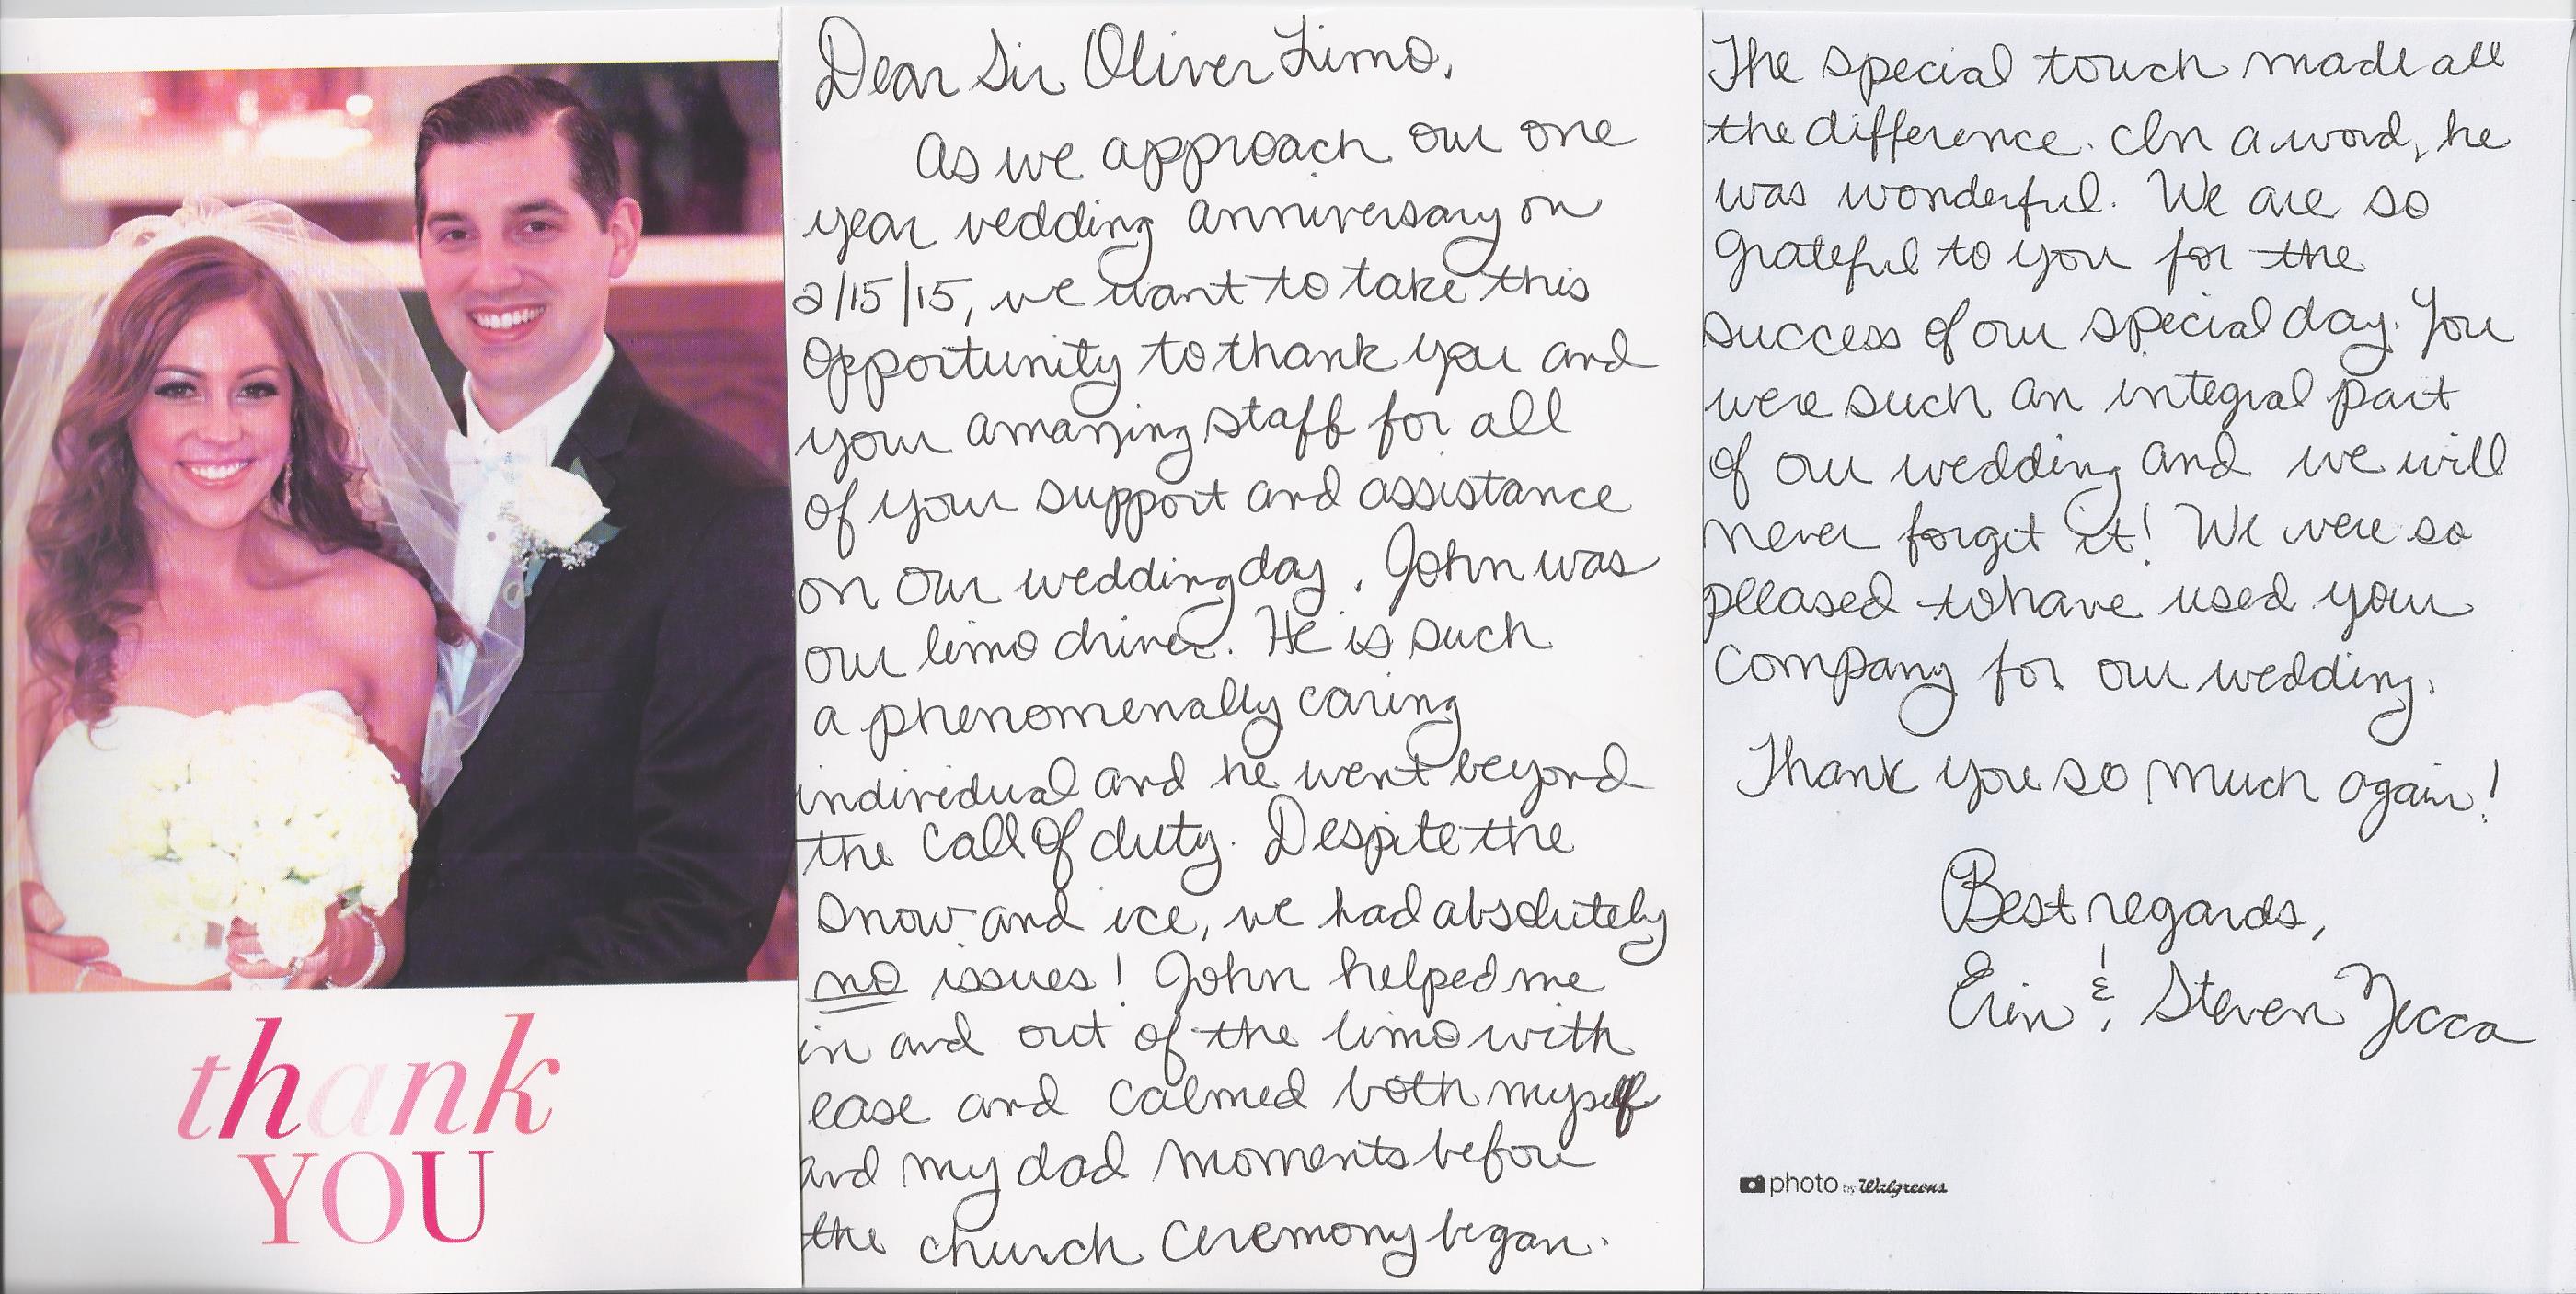 thank
YOU
Dear Sir Oliver Limo,
As we approach our one
year wedding anniversary on
2/15/15, we want to take this
opportunity to thank you and
your amazing staff for all
of your support and assistance
on our wedding day. John was
our limo driver. He is such
a phenomenally caring
individual and he went beyond
the call of duty. Despite the
snow and ice, we had absolutely
no issues! John helped me
in and out of the limo with
ease and calmed both myself
and my dad moments before
the church ceremony began.
The special touch made all
the difference. In a word, he
was wonderful. We are so
grateful to you for the
success of our special day. You
were such an integral part
of our wedding and we will
never forget it! We were so
pleased to have used your
company for our wedding.
Thank you so much again!
Best regards,
Erin & Steven Zecca
photo by Walgreens